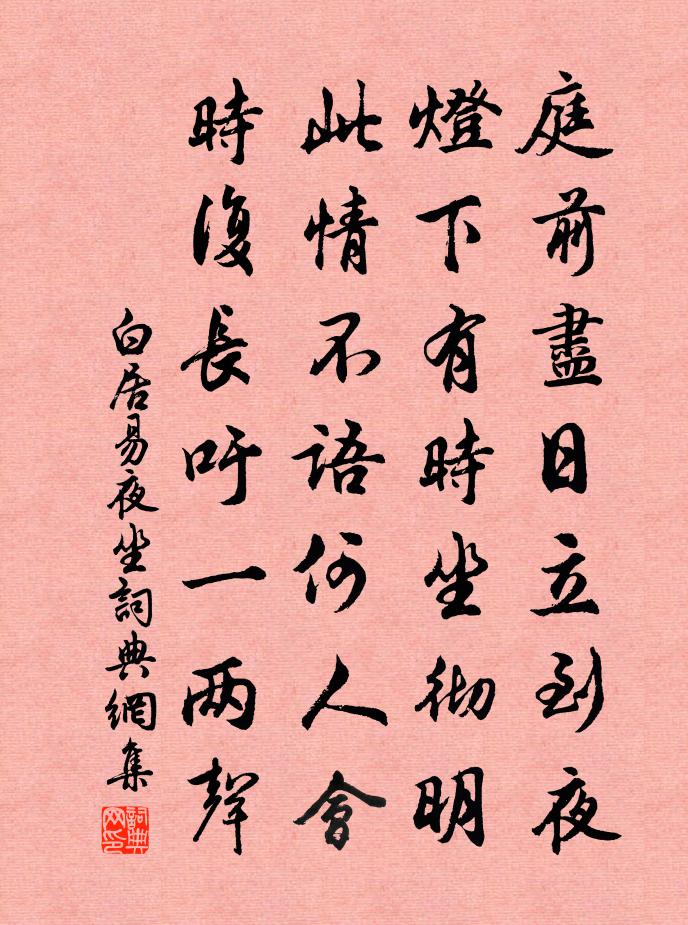 庭前盡日立到夜
燈下有時坐彻明
此情不語何人會
時復長吁一两聲
白居易夜坐詞典網集
詞典网印